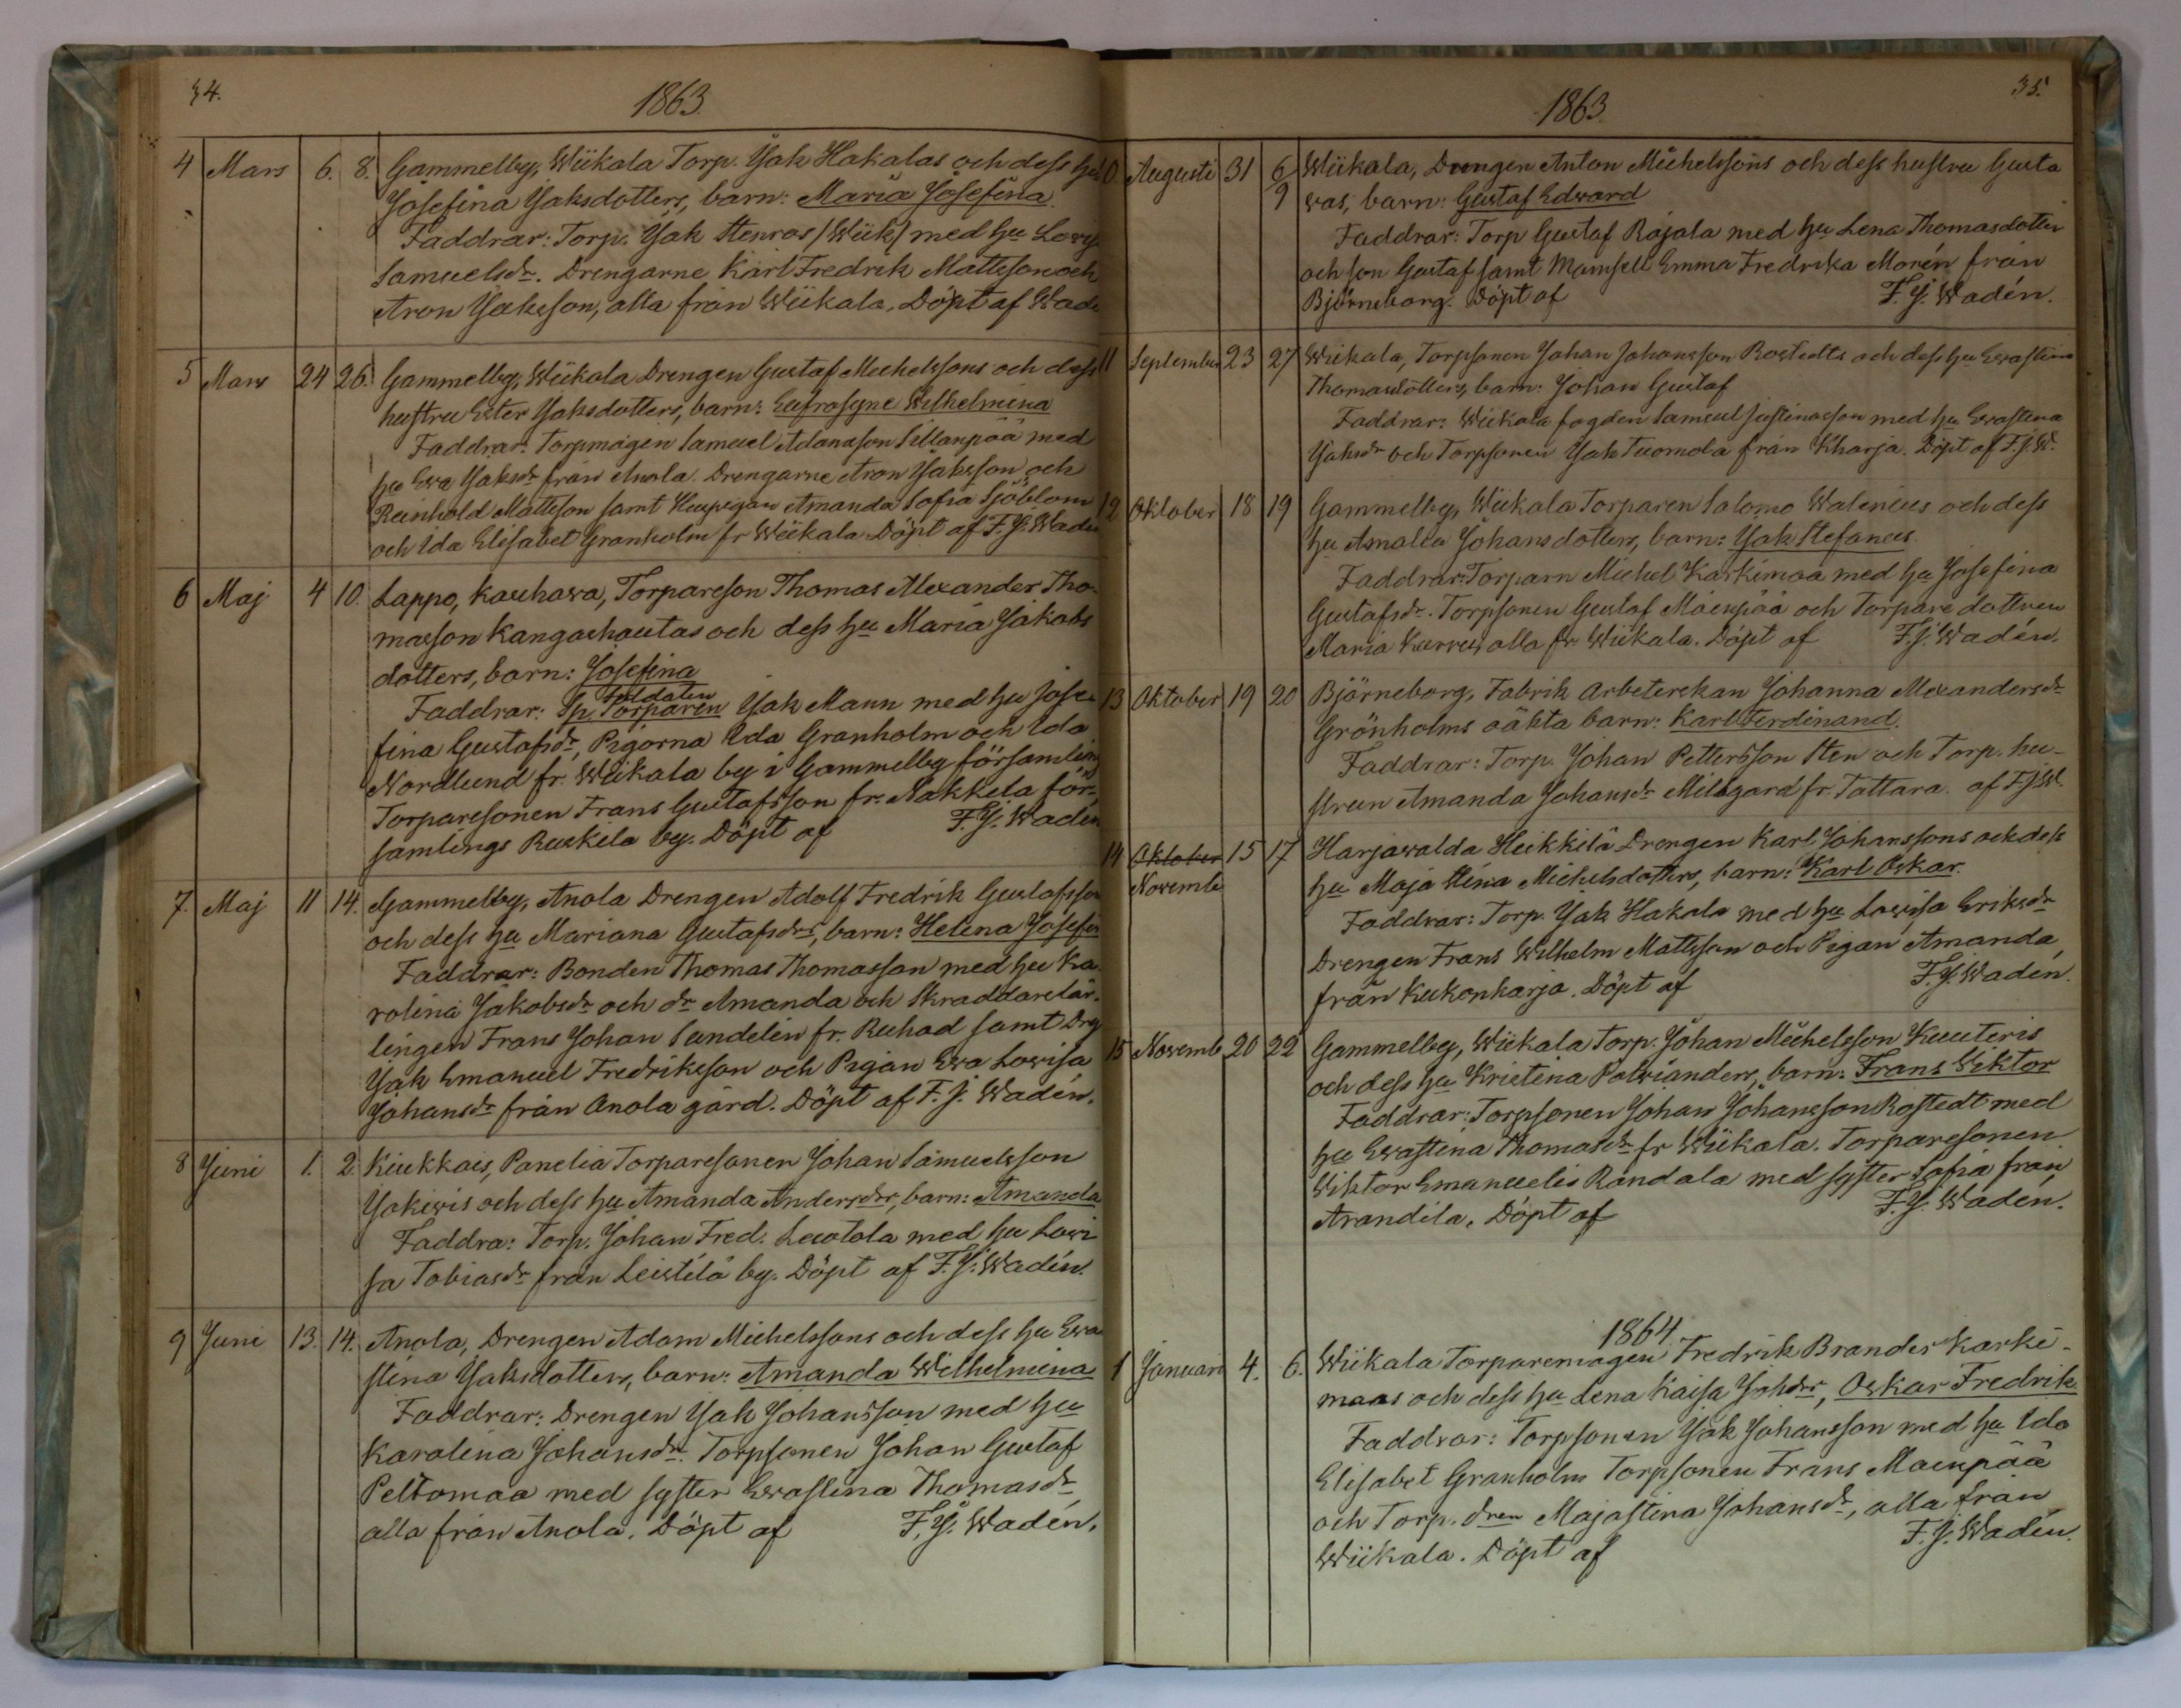 34.
1863.
4 Mars 6. 8. Gammelby, Wiikala Torp. Jak Hakalas och dess hu
Josefina Jaksdotters, barn: Maria Josefina.
Faddrar: Torp. Jak Stenros /Wiik/ med hu Lovis
Samuelsdr. Drengarne Karl Fredrik Mattsson och
Aron Jaksson, alla från Wiikala. Döpt af Wadé
5 Mars 24 26. Gammelby, Wiikala Drengen Gustaf Michelssons och dess
hustru Ester Jaksdotters, barn: Eufrosyne Wilhelmina
Faddrar: Torpmågen Samuel Adamsson Sillanpää med
hu Ewa Jaksdr från Anola. Drengarne Aron Jaksson och
Reinhold Mattsson samt Huspigan Amanda Sofia Sjöblom
och Ida Elisabet Granholm fr Wiikala Döpt af F. J. Wadén
6 Maj 4 10. Lappo, Kauhawa, Torpareson Thomas Alexander Tho-
masson Kangashautas och dess hu Maria Jakobs
dotters, barn: Josefina
Faddrar: Sp. Torparen soldaten Jak Mann med hu Jose-
fina Gustafsdr, Pigorna Ida Granholm och Ida
Nordlund fr. Wiikala by i Gammelby församling
Torparesonen Frans Gustafsson fr. Nakkila för-
samlings Ruskila by. Döpt af F. J. Wadén
7. Maj 11 14. Gammelby, Anola Drengen Adolf Fredrik Gustafsson
och dess hu Mariana Gustafsdrs, barn: Helena Josefin
Faddrar: Bonden Thomas Thomasson med hu Ka-
rolina Jakobsdr och dr Amanda och Skraddarelär-
lingen Frans Johan Sandelin fr. Ruhad samt Drg
Jak Emanuel Fredriksson och Pigan Ewa Lovisa
Johansdr från Anola gård. Döpt af F. J. Wadén.
8 Juni 1. 2. Kiukkais, Panelia Torparesonen Johan Samuelsson
Yokiwis och dess hu Amanda Andersdrs, barn: Amanda
Faddra: Torp. Johan Fred. Leutola med hu Lowi
sa Tobiasdr från Leistilä by. Döpt af F. J. Wadén.
9 Juni 13. 14. Anola, Drengen Adam Michelssons och dess hu Ewa
stina Jaksdotters, barn: Amanda Wilhelmina
Faddrar: Drengen Jak Johansson med hu
Karolina Johansdr. Torpsonen Johan Gustaf
Peltomaa med syster Ewastina Thomasdr
alla från Anola. Döpt af F. J. Wadén.
35.
1863.
10 Augusti 31 6/9 Wiikala, Drengen Anton Michelssons och dess hustru Gusta
vas, barn: Gustaf Edward
Faddrar: Torp Gustaf Rajala med hu Lena Thomasdotter
och son Gustaf samt Mamsell Emma Fredrika Morén från
Björneborg. Döpt af F. J. Wadén.
11 September 23 27 Wiikala, Torpsonen Johan Johansson Rostedts och dess hu Ewastina
Thomasdotters, barn: Johan Gustaf
Faddrar: Wiikala fogden Samuel Justinasson med hu Ewastina
Jaksdr och Torpsonen Jak Tuomola från Kharja. Döpt af F. J. W.
12 Oktober 18 19 Gammelby, Wiikala Torparen Salomo Walenius och dess
hu Amalia Johansdotters, barn: Jak Stefanus.
Faddrar: Torparn Michel Karkimaa med hu Josefina
Gustafsdr. Torpsonen Gustaf Mäenpää och Torpare dottren
Maria Kurru, alla fr. Wiikala. Döpt af F. J. Wadén.
13 Oktober 19 20 Björneborg, Fabrik Arbeterskan Johanna Alexandersdr
Grönholms oäkta barn: Karl Ferdinand.
Faddrar: Torp. Johan Pettersson Sten och Torp. hu-
strun Amanda Johansdr Milsgard fr. Tattara. af F. J. W.
14 Oktober 15 17 Harjawalda Heikkilä Drengen Karl Johanssons och dess
Novemb hu Maja Stina Michelsdotters, barn: Karl Oskar.
Faddrar: Torp. Jak Hakala med hu Lowisa Eriksdr
Drengen Frans Wilhelm Mattsson och Pigan Amanda,
från Kukonharja. Döpt af F. J. Wadén.
15 Novemb 20 22 Gammelby, Wiikala Torp. Johan Michelsson Kuuteris
och dess hu Kristina Polwianders, barn: Frans Viktor
Faddrar: Torpsonen Johan Johansson Rostedt med
hu Ewastina Thomasdr fr Wiikala. Torparesonen
Viktor Emanuelis Randala med syster Sofia från
Arandila. Döpt af F. J. Wadén.
1864.
1 Januari 4. 6. Wiikala Torparemagen Fredrik Brander Karki-
maas och dess hu Lena Kaisa Johdrs, Oskar Fredrik.
Faddrar: Torpsonen Jak Johansson med hu Ida
Elisabet Granholm Torpsonen Frans Maenpää
och Torp. dren Majastina Johansdr, alla från
Wiikala. Döpt af F. J. Wadén.